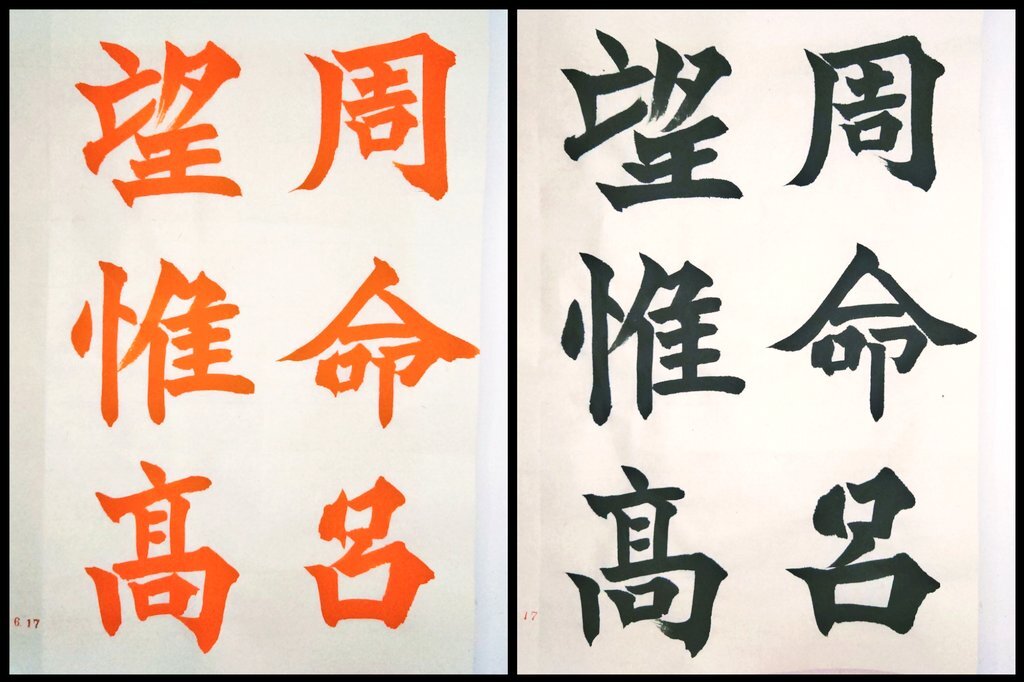 周命呂
望惟高
6.17
周命呂
望惟高
17